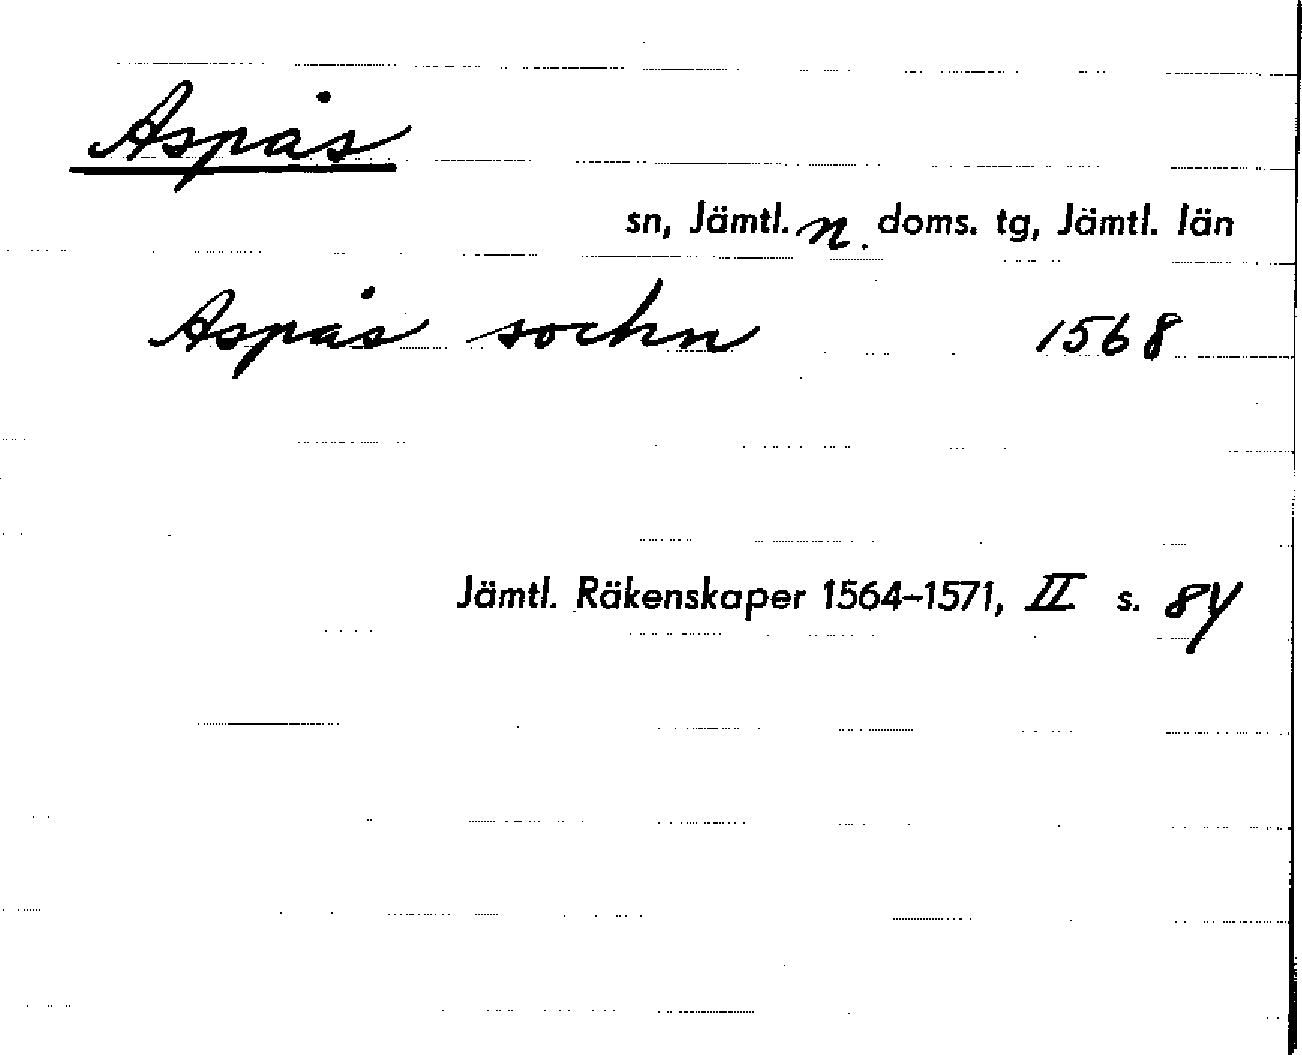 Aspås
sn, Jämtl. n. doms. tg, Jämtl. län
Aspås sochn 1568
Jämtl. Räkenskaper 1564–1571, II s. 84